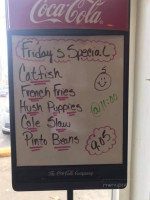 Coca-Cola
Friday's Special
Catfish
French Fries
@ 11:00
Hush Puppies
Cole Slaw
Pinto Beans
9.85
The Coca-Cola Company